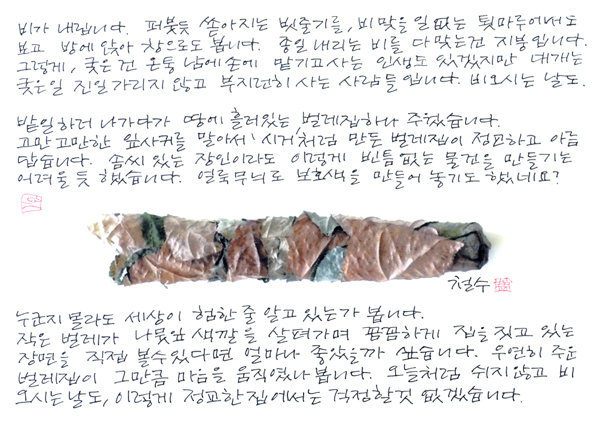 비가 내립니다. 퍼붓듯 쏟아지는 빗줄기를, 비맞을일 없는 툇마루에서도
보고 방에 앉아 창으로도 봅니다. 종일 내리는 비를 다 맞는건 지붕입니다.
그렇게, 궂은 건 온통 남에 손에 맡기고 사는 인생도 있겠지만 대개는
궂은일 진일 가리지 않고 부지런히 사는 사람들입니다. 비오시는 날도.
밭일하러 나가다가 땅에 흘러있는 벌레집하나 주웠습니다.
고만고만한 잎사귀를 말아서 '시거'처럼 만든 벌레집이 정교하고 아름
답습니다. 솜씨 있는 장인이라도 이렇게 빈틈 없는 물건을 만들기는
어려울 듯 했습니다. 얼룩무늬로 보호색을 만들어 놓기도 했네요?
철수
누군지 몰라도 세상이 험한 줄 알고 있는가 봅니다.
작은 벌레가 나뭇잎 색깔을 살펴가며 꼼꼼하게 집을 짓고 있는
장면을 직접 볼수있다면 얼마나 좋았을까 싶습니다. 우연히 주운
벌레집이 그만큼 마음을 움직였나봅니다. 오늘처럼 쉬지않고 비
오시는날도, 이렇게 정교한집에서는 걱정할것 없겠습니다.